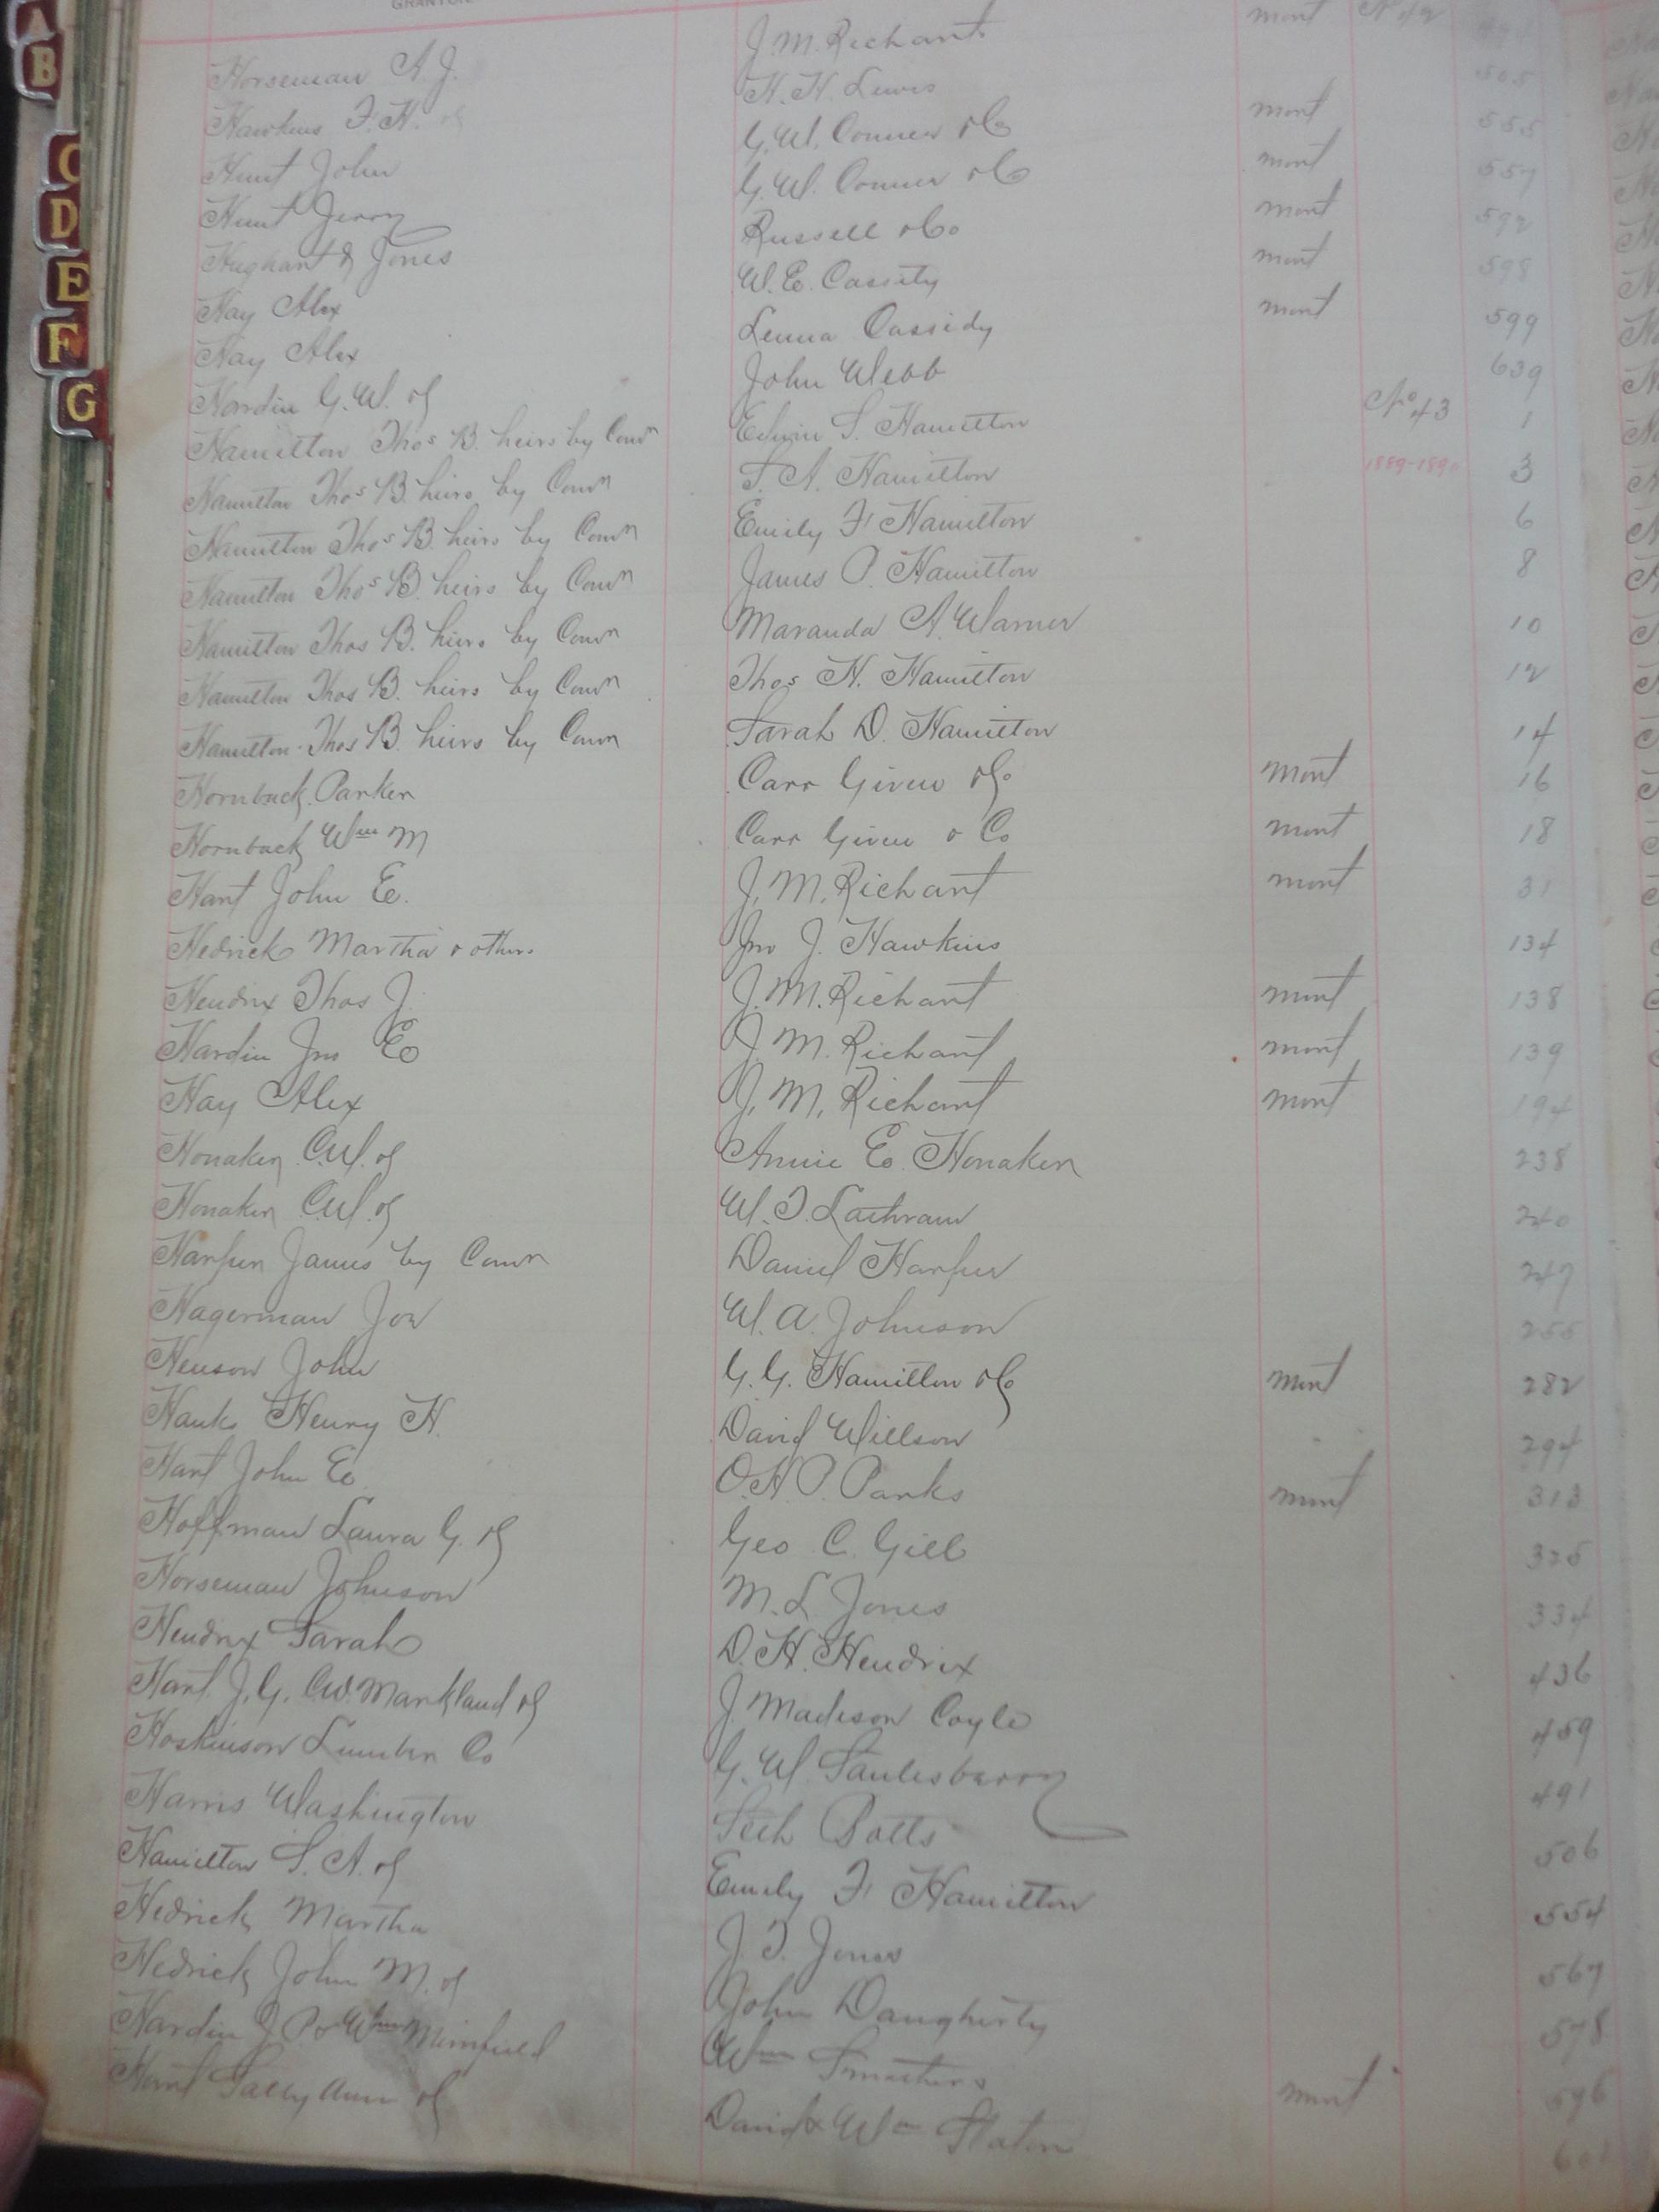 A
B
C
D
E
F
G
GRANTOR
Horseman A. J. J. M. Richart mont No 42
Hawkins F. H. H. H. Lewis 505
Hunt John G. W. Conner & Co mont 555
Hunt Jerry G. W. Conner & Co mont 557
Hughart & Jones Russell & Co mont 592
Hay Alex W. E. Cassity mont 598
Hay Alex Lenna Cassidy mont 599
Hardin G. W. &c John Webb 639
Hamilton Thos B. heirs by Comr Edwin S. Hamilton No 43 1
Hamilton Thos B. heirs by Comr S. A. Hamilton 1889-1890 3
Hamilton Thos B. heirs by Comr Emily F. Hamilton 6
Hamilton Thos B. heirs by Comr James P. Hamilton 8
Hamilton Thos B. heirs by Comr Maranda A. Warner 10
Hamilton Thos B. heirs by Comr Thos H. Hamilton 12
Hamilton Thos B. heirs by Comr Sarah D. Hamilton 14
Hornback Parker Carr Given & Co mont 16
Hornback Wm M Carr Given & Co mont 18
Hart John E. J. M. Richart mont 31
Hedrick Martha & others Jno J. Hawkins 134
Hendrix Thos J. J. M. Richart mont 138
Hardin Jno E J. M. Richart mont 139
Hay Alex J. M. Richart mont 194
Honaker C. W. &c Annie E. Honaker 238
Honaker C. W. &c W. T. 240
Harper James by Comr Daniel Harper 247
Hagerman Joe W. A. Johnson
Henson John G. G. Hamilton & Co mont 282
Hanks Henry H. David Willson 294
Hart John E. O. H. P. Parks mont 313
Hoffman Laura G. &c Geo C. Gill 325
Horseman Johnson M. L Jones 334
Hendrix Sarah D. H. Hendrix 436
Hart J. G. C. W. Markland &c J Madison Coyle 459
Hoskinson Lumber Co G. W. Saulesberry 491
Harris Washington Seth Botts 506
Hamilton S. A. &c Emily F. Hamilton 554
Hedrick Martha J. T. Jones 567
Hedrick John M. &c John Daugherty 578
Hardin J. P & Wm Wm Smathers mont 596
Hart Sally Ann &c David & Wm Staton